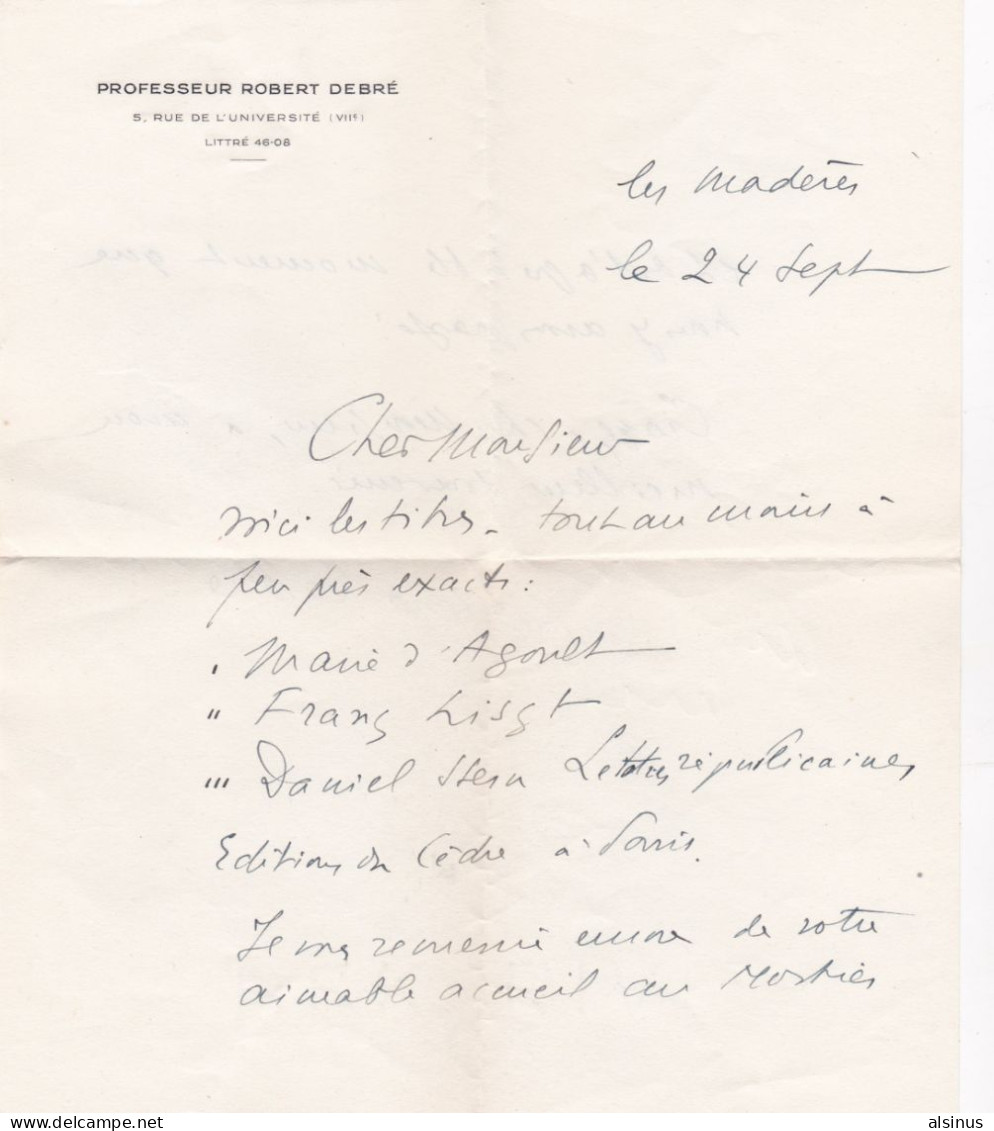 PROFESSEUR ROBERT DEBRÉ
5, RUE DE L'UNIVERSITÉ (VIIE)
LITTRÉ 46-08
les Madères
le 24 Sept
Cher Monsieur
voici les titres - tout au moins à
peu près exacts:
ı Marie d'Agoult
ıı Franz Liszt
ııı Daniel Stern Lettres républicaines
Editions du Cèdre à Paris.
Je vous remercie encore de votre
aimable accueil au
alsinus